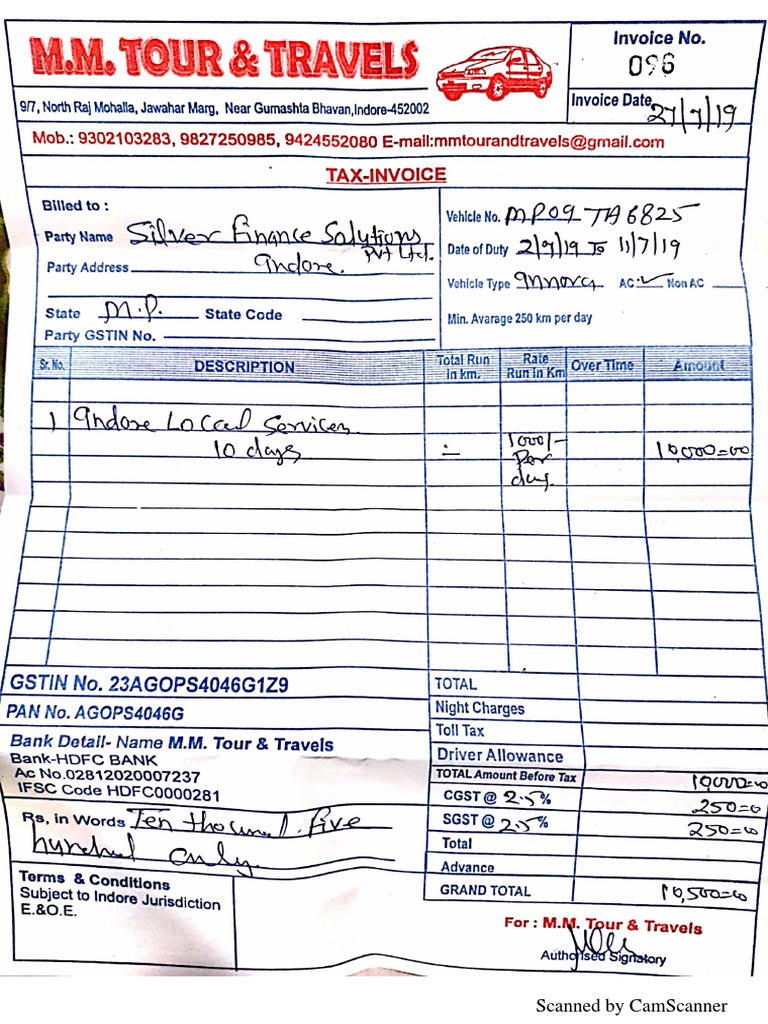 M.M. TOUR & TRAVELS
Invoice No.
096
9/7, North Raj Mohalla, Jawahar Marg, Near Gumashta Bhavan,Indore-452002
Invoice Date 27/7/19
Mob.: 9302103283, 9827250985, 9424552080 E-mail:mmtourandtravels@gmail.com
TAX-INVOICE
Billed to :
Party Name Silver Finance Solutions Pvt Ltd.
Party Address Indore.
State M.P. State Code
Party GSTIN No.
Vehicle No. MP09 TA6825
Date of Duty 2/7/19 To 11/7/19
Vehicle Type Innova AC ✓ Non AC
Min. Avarage 250 km per day
Sr. No. DESCRIPTION Total Run in km. Rate Run in Km Over Time Amount
1 Indore Local Services
10 days 1000/- Per day. 10,000=00
GSTIN No. 23AGOPS4046G1Z9
PAN No. AGOPS4046G
Bank Detail- Name M.M. Tour & Travels
Bank-HDFC BANK
Ac No.02812020007237
IFSC Code HDFC0000281
Rs, in Words Ten thousand five
hundred only.
Terms & Conditions
Subject to Indore Jurisdiction
E.&O.E.
TOTAL
Night Charges
Toll Tax
Driver Allowance
TOTAL Amount Before Tax 10,000=00
CGST @ 2.5% 250=00
SGST @ 2.5% 250=00
Total
Advance
GRAND TOTAL 10,500=00
For : M.M. Tour & Travels
Authorised Signatory
Scanned by CamScanner